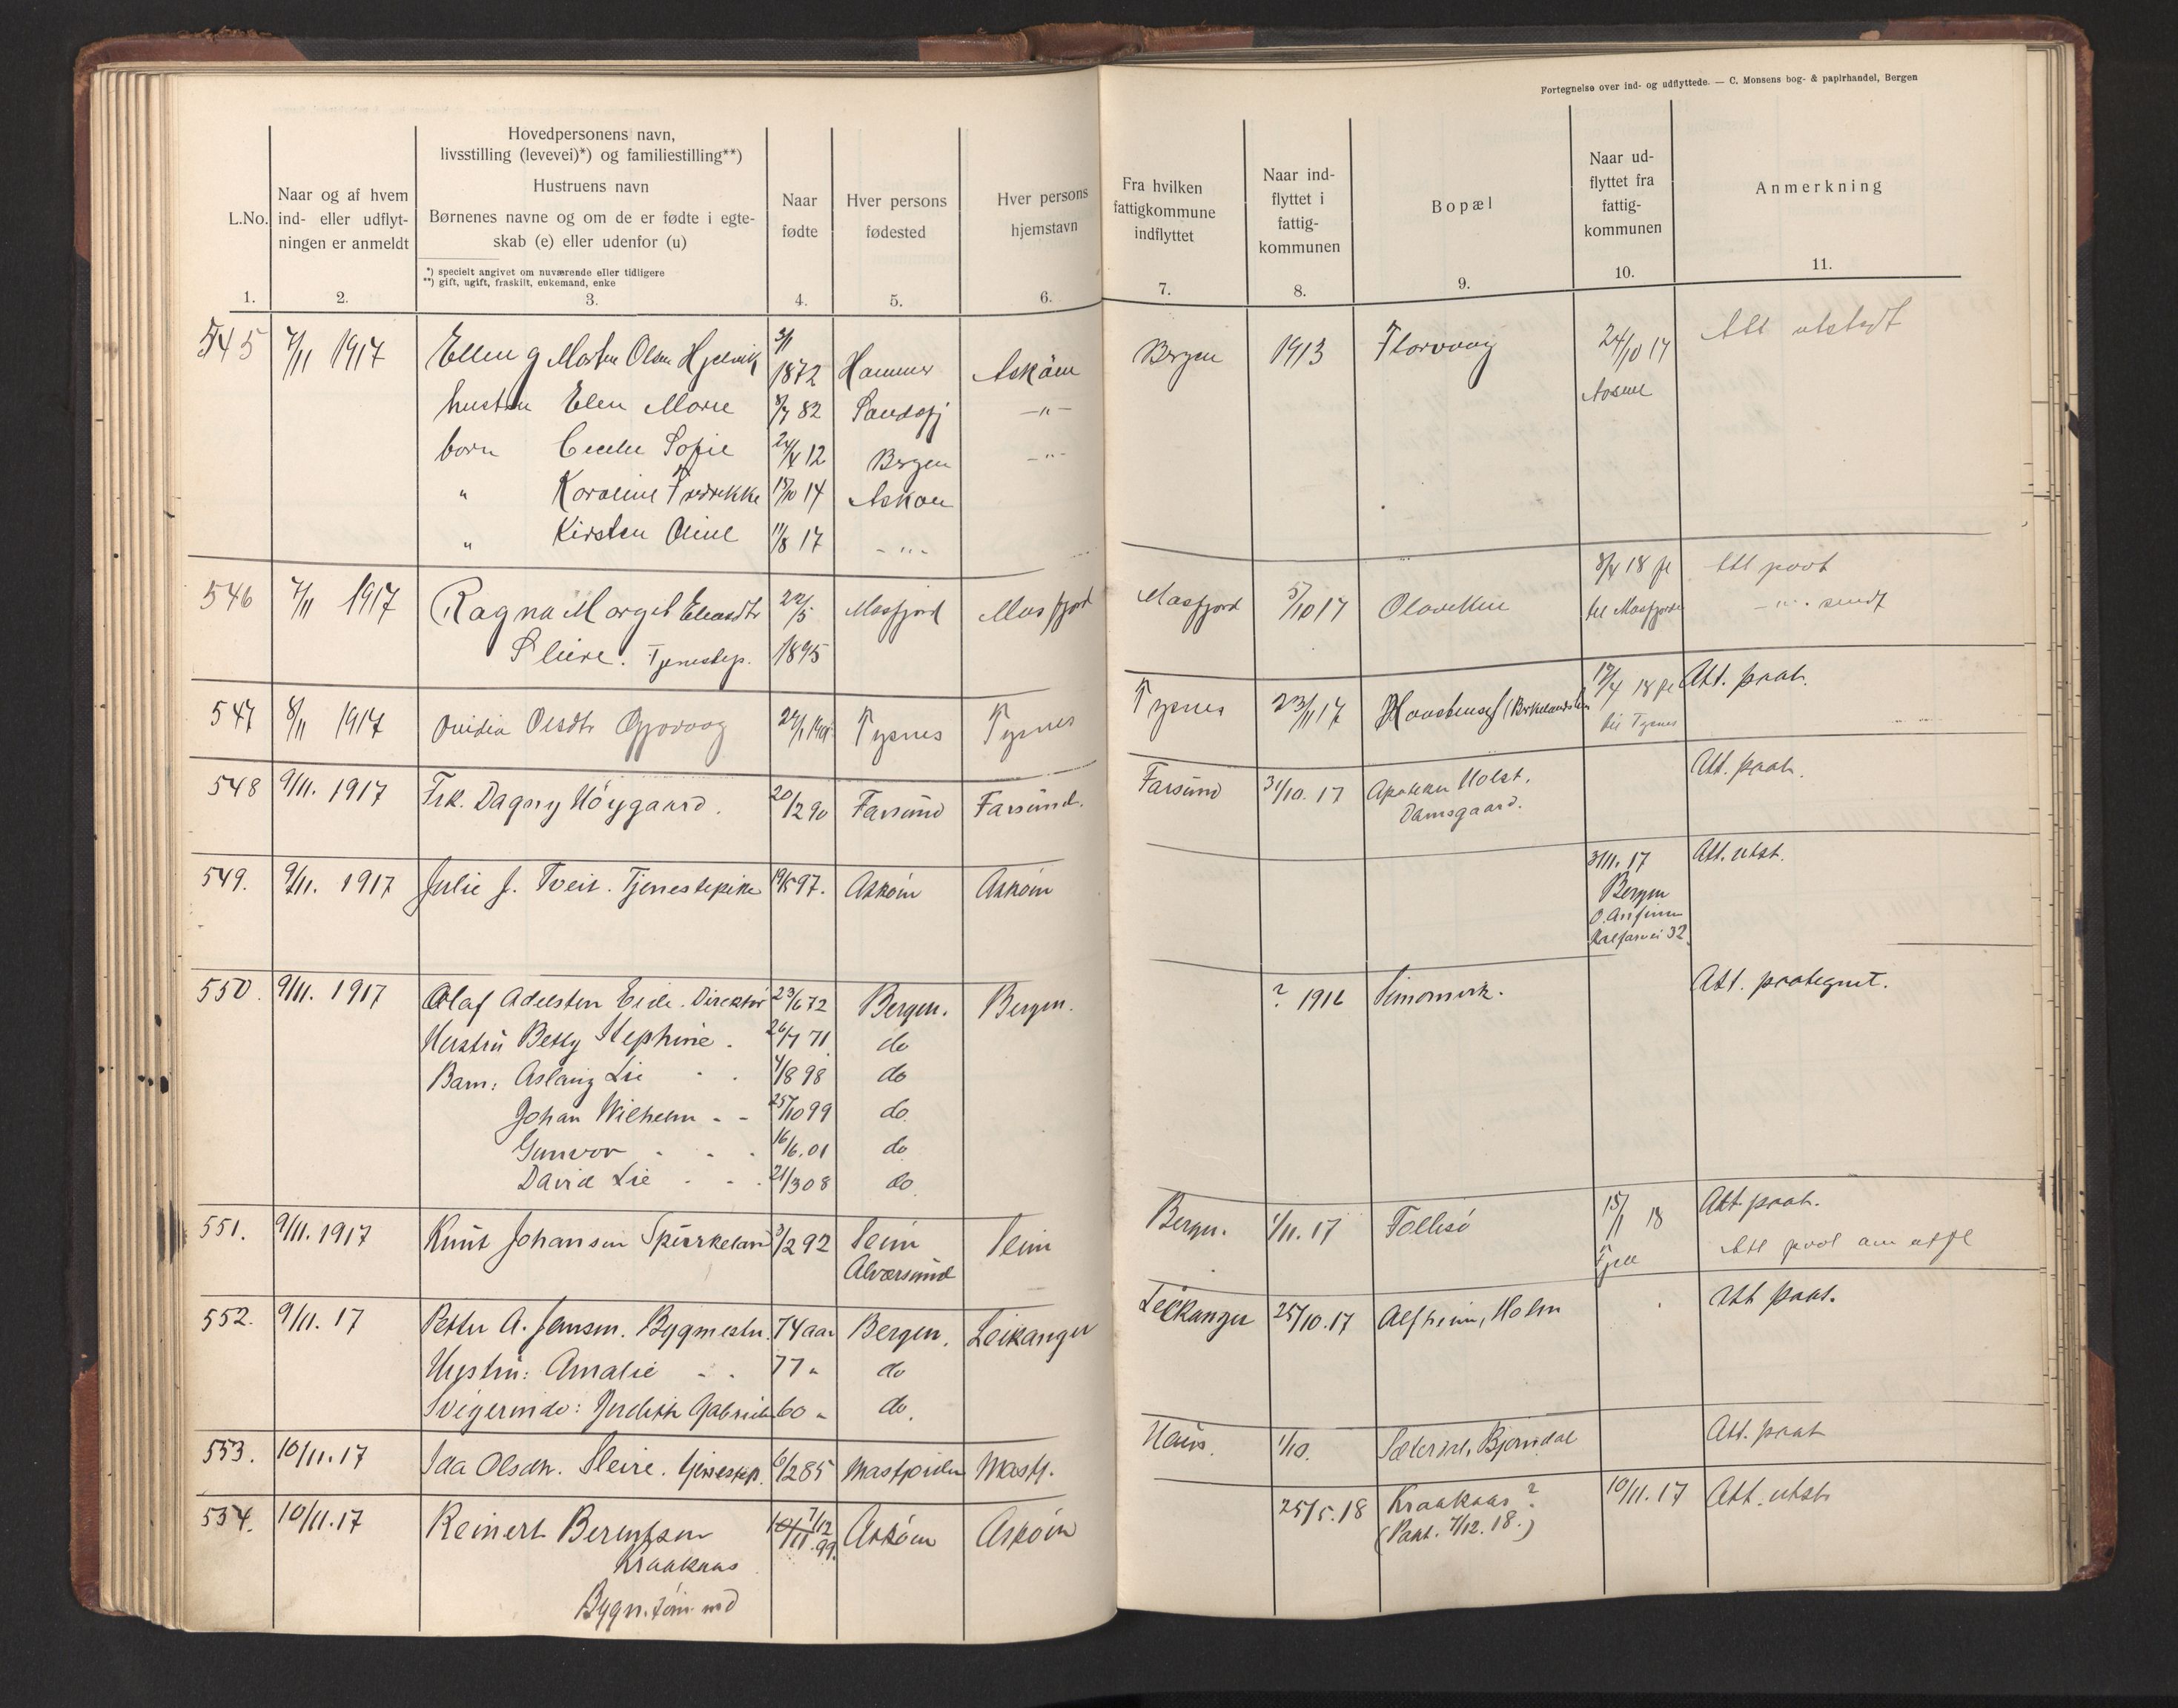 Fortegnelse over ind- og udflyttede. — C. Monsens bog- & papirhandel, Bergen
L.No.
Naar og af hvem
ind- eller udflyt-
ningen er anmeldt
Hovedpersonens navn,
livsstilling (levevei)*) og familiestilling**)
Hustruens navn
Børnenes navne og om de er fødte i egte-
skab (e) eller udenfor (u)
*) specielt angivet om nuværende eller tidligere
**) gift, ugift, fraskilt, enkemand, enke
Naar
fødte
Hver persons
fødested
Hver persons
hjemstavn
Fra hvilken
fattigkommune
indflyttet
Naar ind-
flyttet i
fattig-
kommunen
Bopæl
Naar ud-
flyttet fra
fattig-
kommunen
Anmerkning
1. 2. 3. 4. 5. 6. 7. 8. 9. 10. 11.
545 7/11 1917 Morten Olsen Hjelvik 1872 Hammer Askøen Bergen 1913 Florvaag 24/10 17 Att utstedt
hustru Elen Marie 8/7 82 -"-
born Cecelie Sofie 24/4 12 Bergen -"-
" Karoline Fredrikke 17/10 14 Askøen
" Kirsten Oline 11/8 17 -"-
546 7/11 1917 Ragna Margit 22/5 Masfjord Masfjord Masfjord 5/10 17 8/4 18 Att paat
Sleire. Tjenestep. 1895 til Masfjorden -"- sendt
547 8/11 1917 Ovidia Olsdtr Tysnes Tysnes Tysnes 23/11 17 18 Att. paat.
til Tysnes
548 9/11. 1917 Frk. Dagny Höygaard. 20/2 90 Farsund Farsund. Farsund 31/10. 17 Apoteker Holst. Att. paat.
Damsgaard.
549. 9/11. 1917 Julie J. Tveit. Tjenestepike 19/5 97. Askøen Askøen 3/11. 17 Att. utst.
Bergen
Kalfarvei 32.
550. 9/11. 1917 Olaf Adelsten Eide. Direktør 23/6 72 Bergen. Bergen. ? 1916 Att. paategnet.
Hustru Betty Stephine. 26/7 71 do
Barn: Aslaug Lie 4/8 98 do
Johan Wilhelm - - 25/10 99 do
Gunvor 16/6. 01 do
David Lie 21/3 08 do
551. 9/11. 1917 Knut Johansen Spurkeland 3/2 92 Seim Seim Bergen. 1/11. 17 Follesö 15/1 18 Att. paat.
Alversund Fjell Att paat
552. 9/11. 17 Petter A. Jensen. Bygmester. 74 aar Bergen. Leikanger Leikanger 25/10. 17 Alfheim, Holm Att paat.
Hustru: Amalie 77 " do
Svigerinde: Judith 60 " do.
553. 10/11. 17 Ida Olsdtr. Sleire. tjenestep. 6/2 85 Masfjorden Masfj. Haus. 1/10. Bjørndal Att. paat
554. 10/11. 17 Reinert Berentsen 7/12 99. Askøen Askøen 25/5. 18 Kraakaas? 10/11. 17 Att. utst
Kraakaas (Paat. 7/12. 18.)